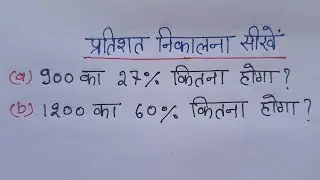 प्रतिशत निकालना सीखें
(a) 900 का 27% कितना होगा?
(b) 1200 का 60% कितना होगा?